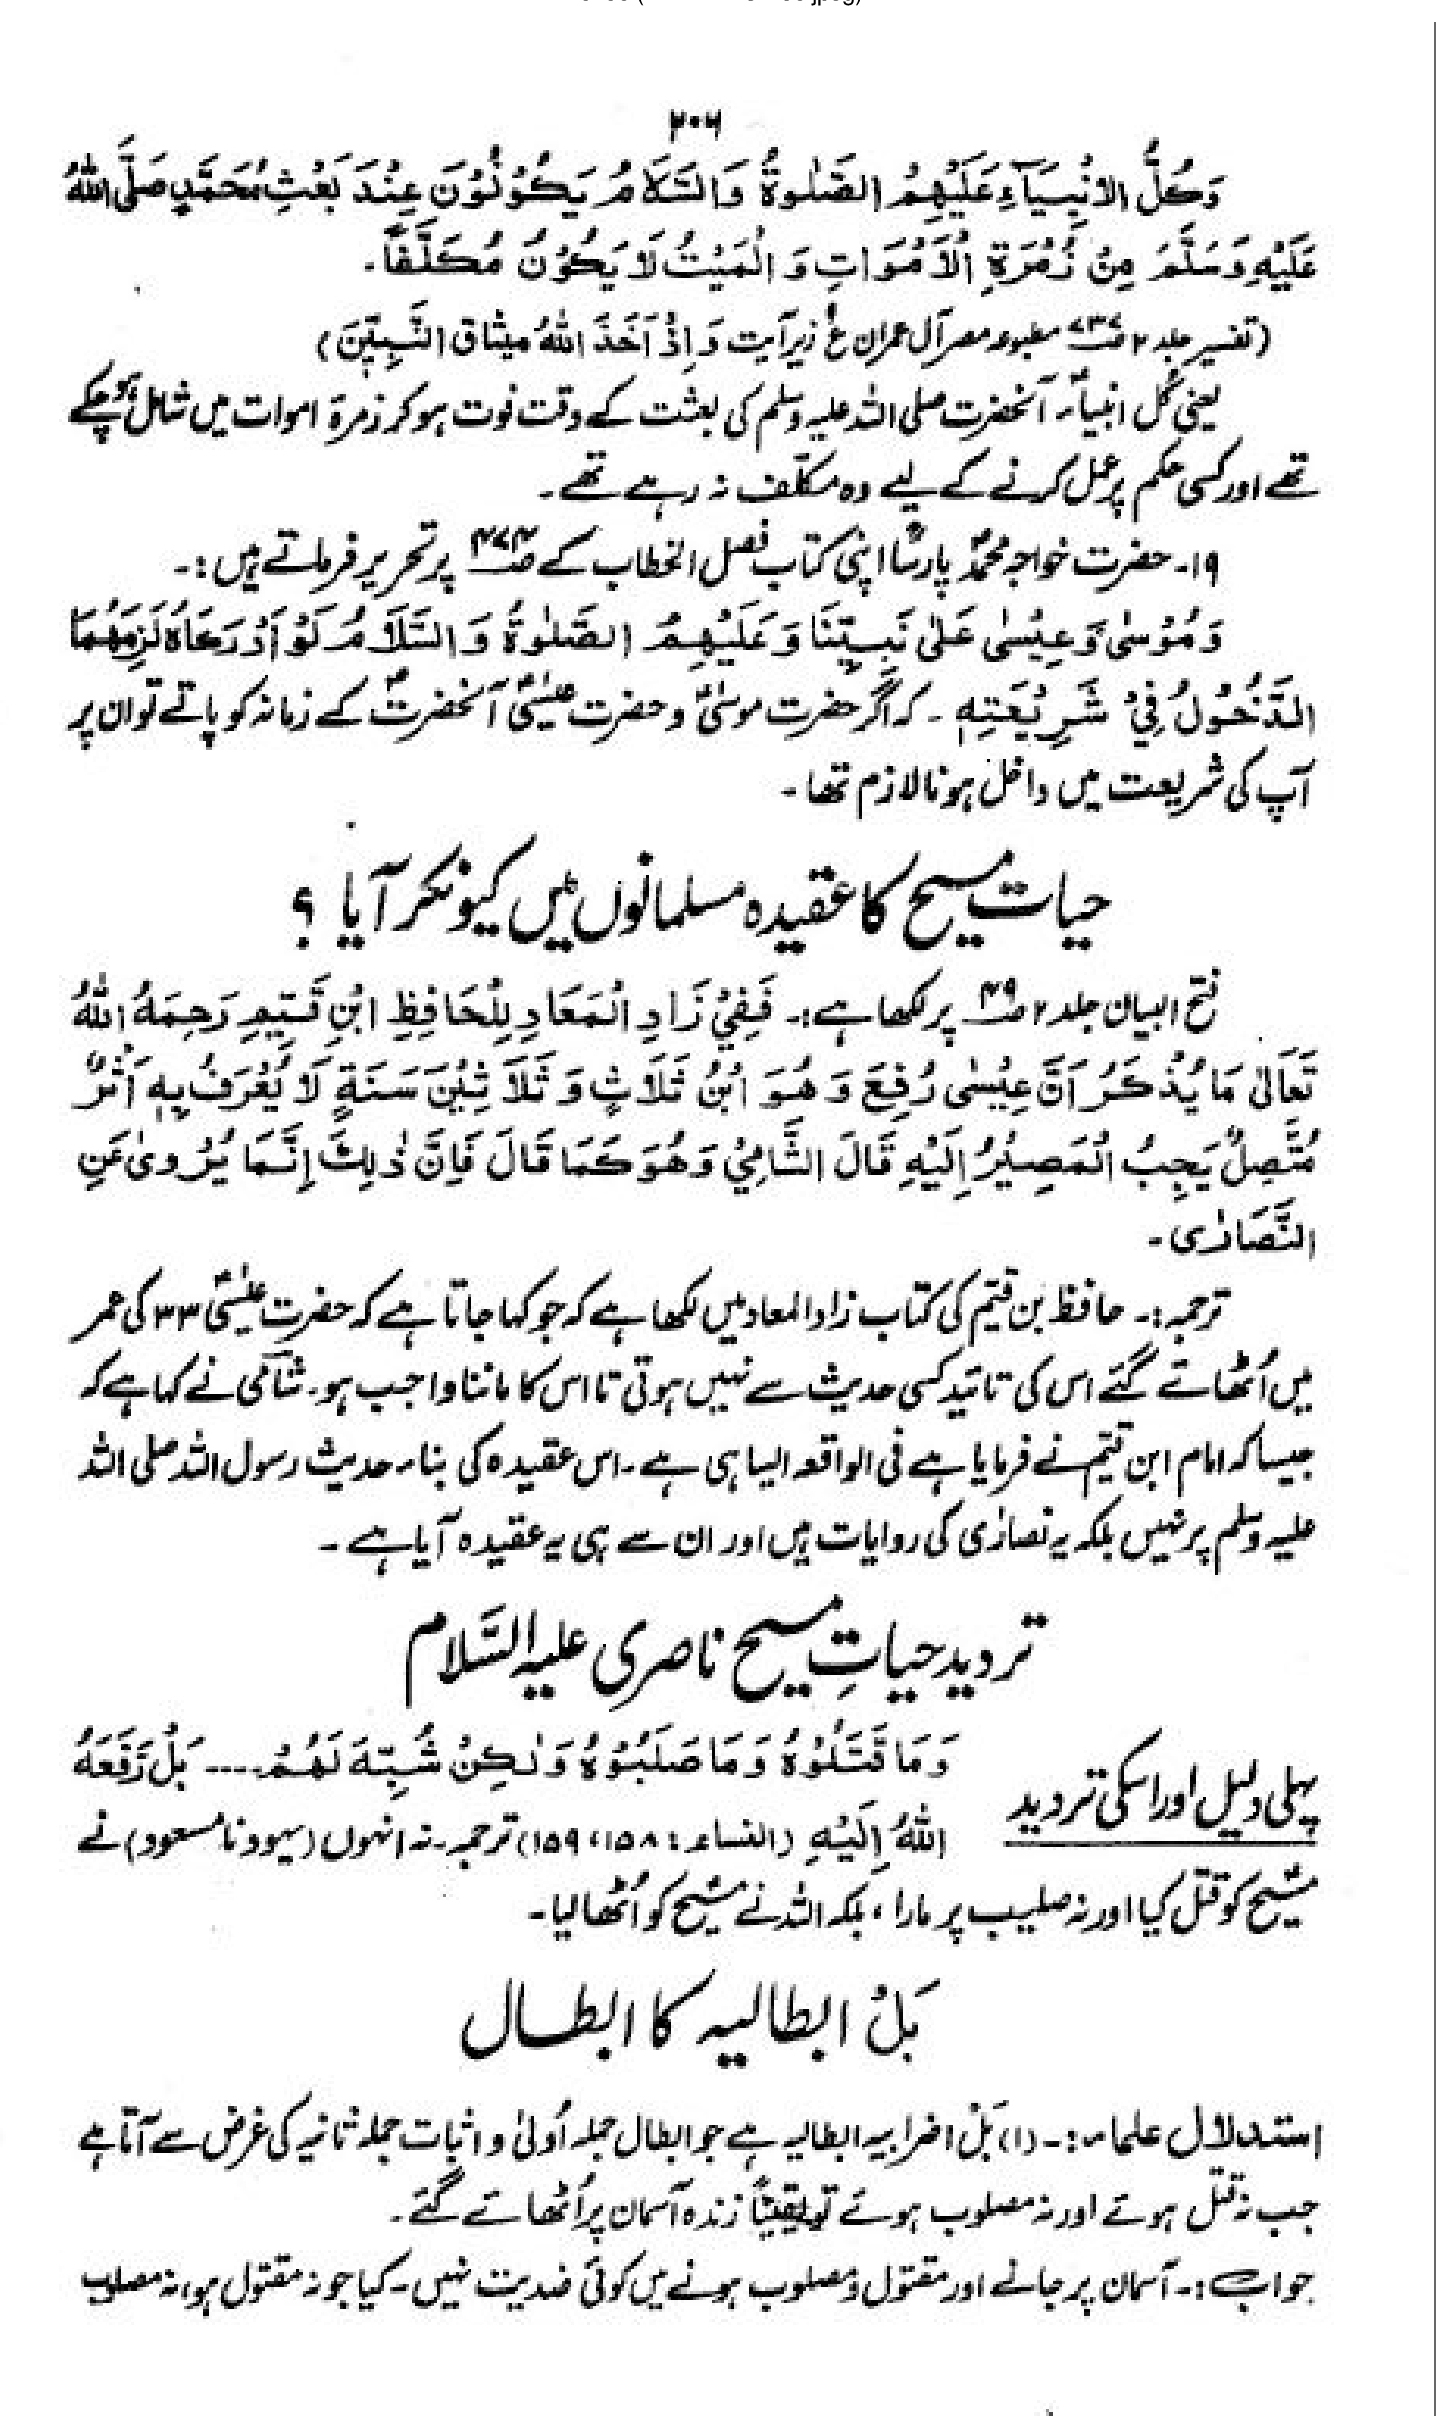 ۲۰۶
وَكُلُّ الْاَنْبِيَآءِ عَلَيْهِمُ الصَّلٰوةُ وَالسَّلَامُ يَكُوْنُوْنَ عِنْدَ بَعْثِ مُحَمَّدٍ صَلَّى اللّٰهُ
عَلَيْهِ وَسَلَّمَ مِنْ زُمْرَةِ الْاَمْوَاتِ وَ الْمَيِّتُ لَا يَكُوْنُ مُكَلَّفًا۔
(تفسیر جلد ۲ مطبوعہ مصر آل عمران زیر آیت وَ اِذْ اَخَذَ اللّٰهُ مِيْثَاقَ النَّبِيّٖنَ)
یعنی کُل انبیاءؑ۔ آنحضرت صلی اللہ علیہ وسلم کی بعثت کے وقت فوت ہو کر زمرۃ اموات میں شامل ہو چکے
تھے اور کسی حکم پر عمل کرنے کے لیے وہ مکلّف نہ رہے تھے۔
۱۹۔ حضرت خواجہ محمدؐ پارساؒ اپنی کتاب فصل الخطاب کے صـ۴۷۴ پر تحریر فرماتے ہیں :۔
وَمُوْسٰى وَعِيْسٰى عَلٰى نَبِيِّنَا وَعَلَيْهِمُ الصَّلٰوةُ وَ السَّلَامُ لَوْ اَدْرَكَاهُ لَزِمَهُمَا
الدُّخُوْلُ فِيْ شَرِيْعَتِهٖ ۔ کہ اگر حضرت موسیٰؑ و حضرت عیسیٰؑ آنحضرتؐ کے زمانہ کو پاتے تو ان پر
آپ کی شریعت میں داخل ہونا لازم تھا۔
حیاتِ مسیح کا عقیدہ مسلمانوں میں کیونکر آیا ؟
فتح البیان جلد ۲ صـ۴۹ پر لکھا ہے :۔ فَفِيْ زَادِ الْمَعَادِ لِلْحَافِظِ ابْنِ قَيِّمٍ رَحِمَهُ اللّٰهُ
تَعَالٰى مَا يُذْكَرُ اَنَّ عِيْسٰى رُفِعَ وَ هُوَ ابْنُ ثَلَاثٍ وَ ثَلَاثِيْنَ سَنَةٍ لَا يُعْرَفُ بِهٖ اَثَرٌ
مُتَّصِلٌ يَجِبُ الْمَصِيْرُ اِلَيْهِ قَالَ الشَّامِيُّ وَهُوَ كَمَا قَالَ فَاِنَّ ذٰلِكَ اِنَّمَا يُرْوٰى عَنِ
النَّصَارٰى ۔
ترجمہ :۔ حافظ بن قیّم کی کتاب زاد المعاد میں لکھا ہے کہ جو کہا جاتا ہے کہ حضرت عیسیٰؑ ۳۳ کی عمر
میں اُٹھائے گئے اس کی تائید کسی حدیث سے نہیں ہوتی تا اس کا ماننا واجب ہو۔ شامی نے کہا ہے کہ
جیسا کہ امام ابن قیّم نے فرمایا ہے فی الواقعہ ایسا ہی ہے ۔ اس عقیدہ کی بناء حدیث رسول اللہ صلی اللہ
علیہ وسلم پر نہیں بلکہ یہ نصارٰی کی روایات ہیں اور ان سے ہی یہ عقیدہ آیا ہے ۔
تردید حیاتِ مسیح ناصری علیہ السّلام
پہلی دلیل اور اسکی تردید
وَمَا قَتَلُوْهُ وَمَا صَلَبُوْهُ وَلٰكِنْ شُبِّهَ لَهُمْ .... بَلْ رَّفَعَهُ
اللّٰهُ اِلَيْهِ (النساء : ۱۵۸، ۱۵۹) ترجمہ۔ نہ انہوں (یہود نا مسعود) نے
مسیحؑ کو قتل کیا اور نہ صلیب پر مارا ، بلکہ اللہ نے مسیحؑ کو اُٹھا لیا۔
بَلْ ابطالیہ کا ابطال
استدلال علماء :۔ (۱) بَلْ اضرابیہ ابطالیہ ہے جو ابطال جملہ اُولیٰ و اثبات جملہ ثانیہ کی غرض سے آتا ہے
جب نہ قتل ہوئے اور نہ مصلوب ہوئے تو یقیناً زندہ آسمان پر اُٹھائے گئے۔
جواب :۔ آسمان پر جانے اور مقتول و مصلوب ہونے میں کوئی ضدیت نہیں ۔ کیا جو نہ مقتول ہو، نہ مصلوب